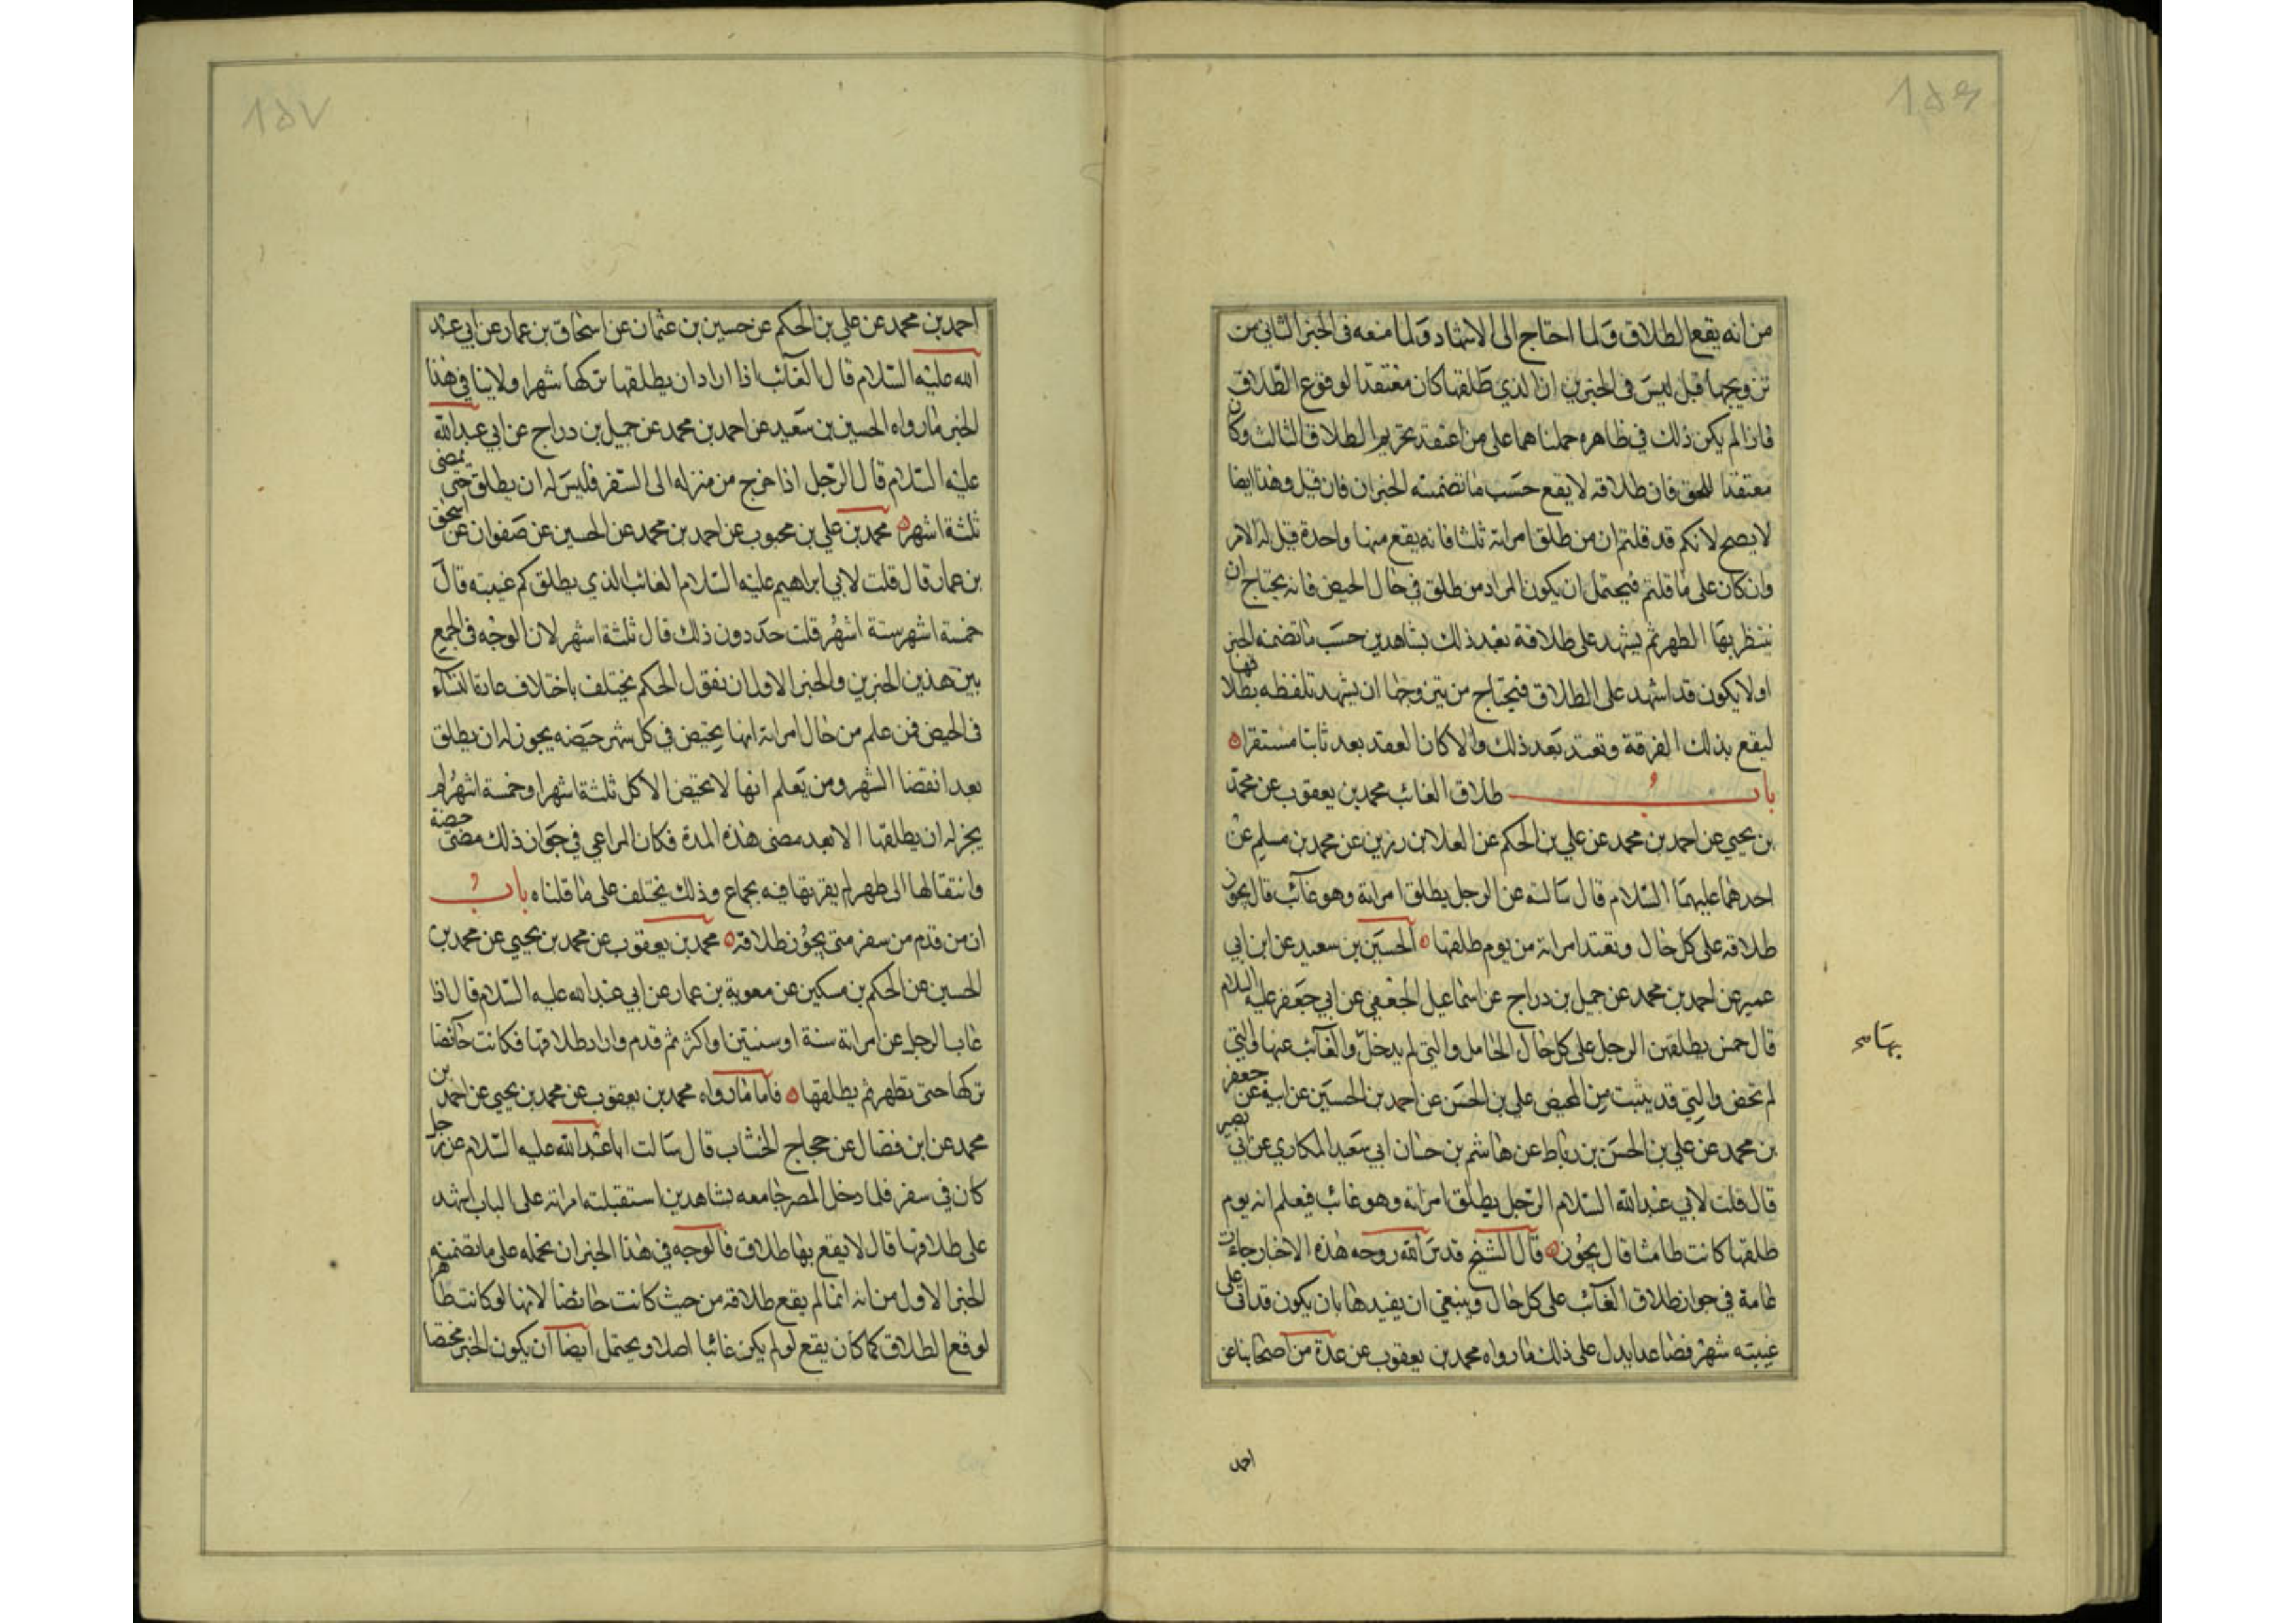 ١٥٦
من انه يقع الطلاق ولما احتاج الى الاشهاد ولما منعه فى الخبر الثانى من
تزويجها قبل ليس فى الخبرين ان الذي طلقها كان معتقدا لوقوع الطلاق
فاذا لم يكن ذلك في ظاهره حملناهما على من اعتقد تحريم الطلاق الثالث وكان
معتقدا للحق فان طلاقه لا يقع حسب ما تضمنته الخبران فان قيل وهذا ايضا
لا يصح لانكم قد قلتم ان من طلق امراته ثلثا فانه يقع منها واحدة قيل له الامر
وان كان على ما قلتم فيحتمل ان يكون المراد من طلق في حال الحيض فانه يحتاج ان
ينتظر بها الطهر ثم يشهد على طلاقة بعد ذلك بشاهدين حسب ما تضمنه الخبر
او لا يكون قد اشهد على الطلاق فيحتاج من يتزوجها ان يشهد تلفظه بطلاقها
ليقع بذلك الفرقة وتعتد بعد ذلك والا كان العقد بعد ثابتا مستقرا
باب طلاق الغائب محمد بن يعقوب عن محمد
بن يحيى عن احمد بن محمد عن علي بن الحكم عن العلا بن رزين عن محمد بن مسلم عن
احدهما عليهما السلام قال سالته عن الرجل يطلق امراته وهو غائب قال يجوز
طلاقه على كل حال وتعتد امراته من يوم طلقها الحسين بن سعيد عن ابن ابي
عمير عن احمد بن محمد عن جميل بن دراج عن اسماعيل الجعفي عن ابي جعفر عليه السلام
قال خمس يطلقهن الرجل على كل حال الحامل والتي لم يدخل والغائب عنها والتي
بها صح
لم تحض والتي قد يئست من المحيض علي بن الحسن عن احمد بن الحسين عن ابيه عن جعفر
بن محمد عن علي بن الحسن بن رباط عن هاشم بن حنان ابي سعيد المكاري عن ابي بصير
قال قلت لابي عبد الله السلام الرجل يطلق امراته وهو غائب فيعلم انه يوم
طلقها كانت طامثا قال يجوز قال الشيخ قدس الله روحه هذه الاخبار جاءت
عامة في جواز طلاق الغائب على كل حال وينبغي ان يقيدها بان يكون قد اتى على
غيبته شهر فصاعدا يدل على ذلك ما رواه محمد بن يعقوب عن عدة من اصحابنا عن
احمد
١٥٧
احمد بن محمد عن علي بن الحكم عن حسين بن عثمان عن اسحاق بن عمار عن ابي عبد
الله عليه السلام قال الغائب اذا اراد ان يطلقها تركها شهرا ولا ينافي هذا
الخبر ما رواه الحسين بن سعيد عن احمد بن محمد عن جميل بن دراج عن ابي عبد الله
عليه السلام قال الرجل اذا خرج من منزله الى السفر فليس له ان يطلق حتى تمضى
ثلثة اشهر محمد بن علي بن محبوب عن احمد بن محمد عن الحسين عن صفوان عن اسحق
بن عمار قال قلت لابي ابراهيم عليه السلام الغائب الذي يطلق كم غيبته قال
خمسة اشهر ستة اشهر قلت حد دون ذلك قال ثلثة اشهر لان الوجه في الجمع
بين هذين الخبرين والخبر الاول ان نقول الحكم يختلف باختلاف عادة النساء
فى الحيض فمن علم من حال امراته انها تحيض في كل شهر حيضه يجوز له ان يطلق
بعد انقضا الشهر ومن يعلم انها لا تحيض الا كل ثلثة اشهر او خمسة اشهر لم
يجز له ان يطلقها الا بعد مضى هذه المدة فكان المراعي في جواز ذلك مضى حيضة
وانتقالها الى طهر لم يقربها فيه بجماع وذلك يختلف على ما قلناه باب
ان من قدم من سفر متى يجوز طلاقه محمد بن يعقوب عن محمد بن يحيى عن محمد بن
الحسين عن الحكم بن مسكين عن معوية بن عمار عن ابي عبد الله عليه السلام قال اذا
غاب الرجل عن امراته سنة او سنتين او اكثر ثم قدم واراد طلاقها فكانت حائضا
تركها حتى تطهر ثم يطلقها فاما ما رواه محمد بن يعقوب عن محمد بن يحيى عن احمد بن
محمد عن ابن فضال عن حجاج الخشاب قال سالت ابا عبد الله عليه السلام عن رجل
كان في سفر فلما دخل المصر جا معه بشاهدين استقبلته امراته على الباب اشهد
على طلاقها قال لا يقع بها طلاق فالوجه في هذا الخبر ان نحمله على ما تضمنه
الخبر الاول من انه انما لم يقع طلاقه من حيث كانت حائضا لانها لو كانت طاهر
لوقع الطلاق كما كان يقع لو لم يكن غائبا اصلا ويحتمل ايضا ان يكون الخبر مختصا